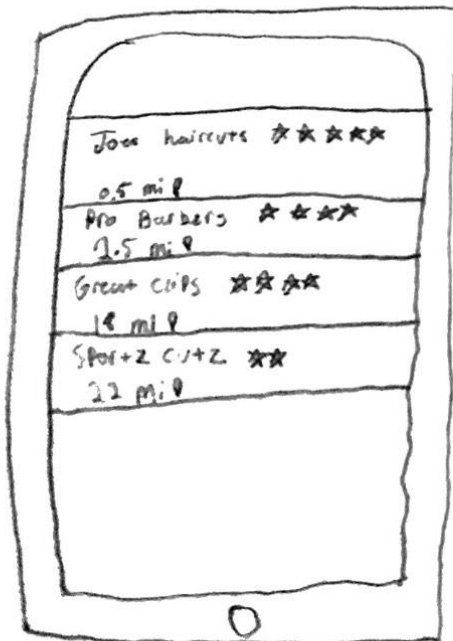 Joes haircuts ★★★★★
0.5 mi
Pro Barbers ★★★★
2.5 mi
Great clips ★★★★
18 mi
Sportz cutz ★★
22 mi